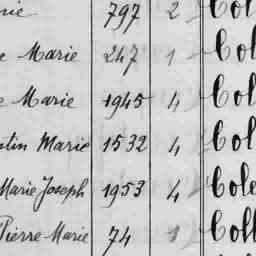 nie 797 2 Col
e Marie 247 1 Col
e Marie 1945 4 Col
ntin Marie 1532 4 Col
Marie Joseph 1953 4 Cole
Pierre Marie 74 1 Coll